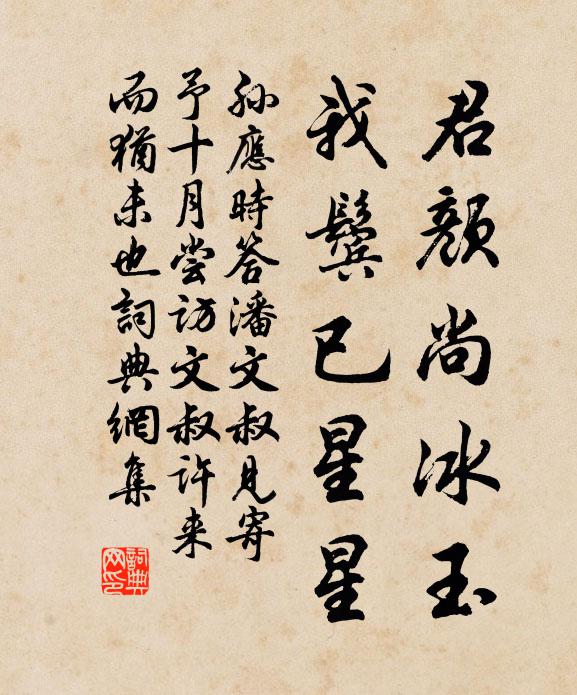 君顏尚冰玉
我鬢已星星
孫應時答潘文叔見寄
予十月嘗訪文叔許来
而猶未也詞典網集
詞典网印